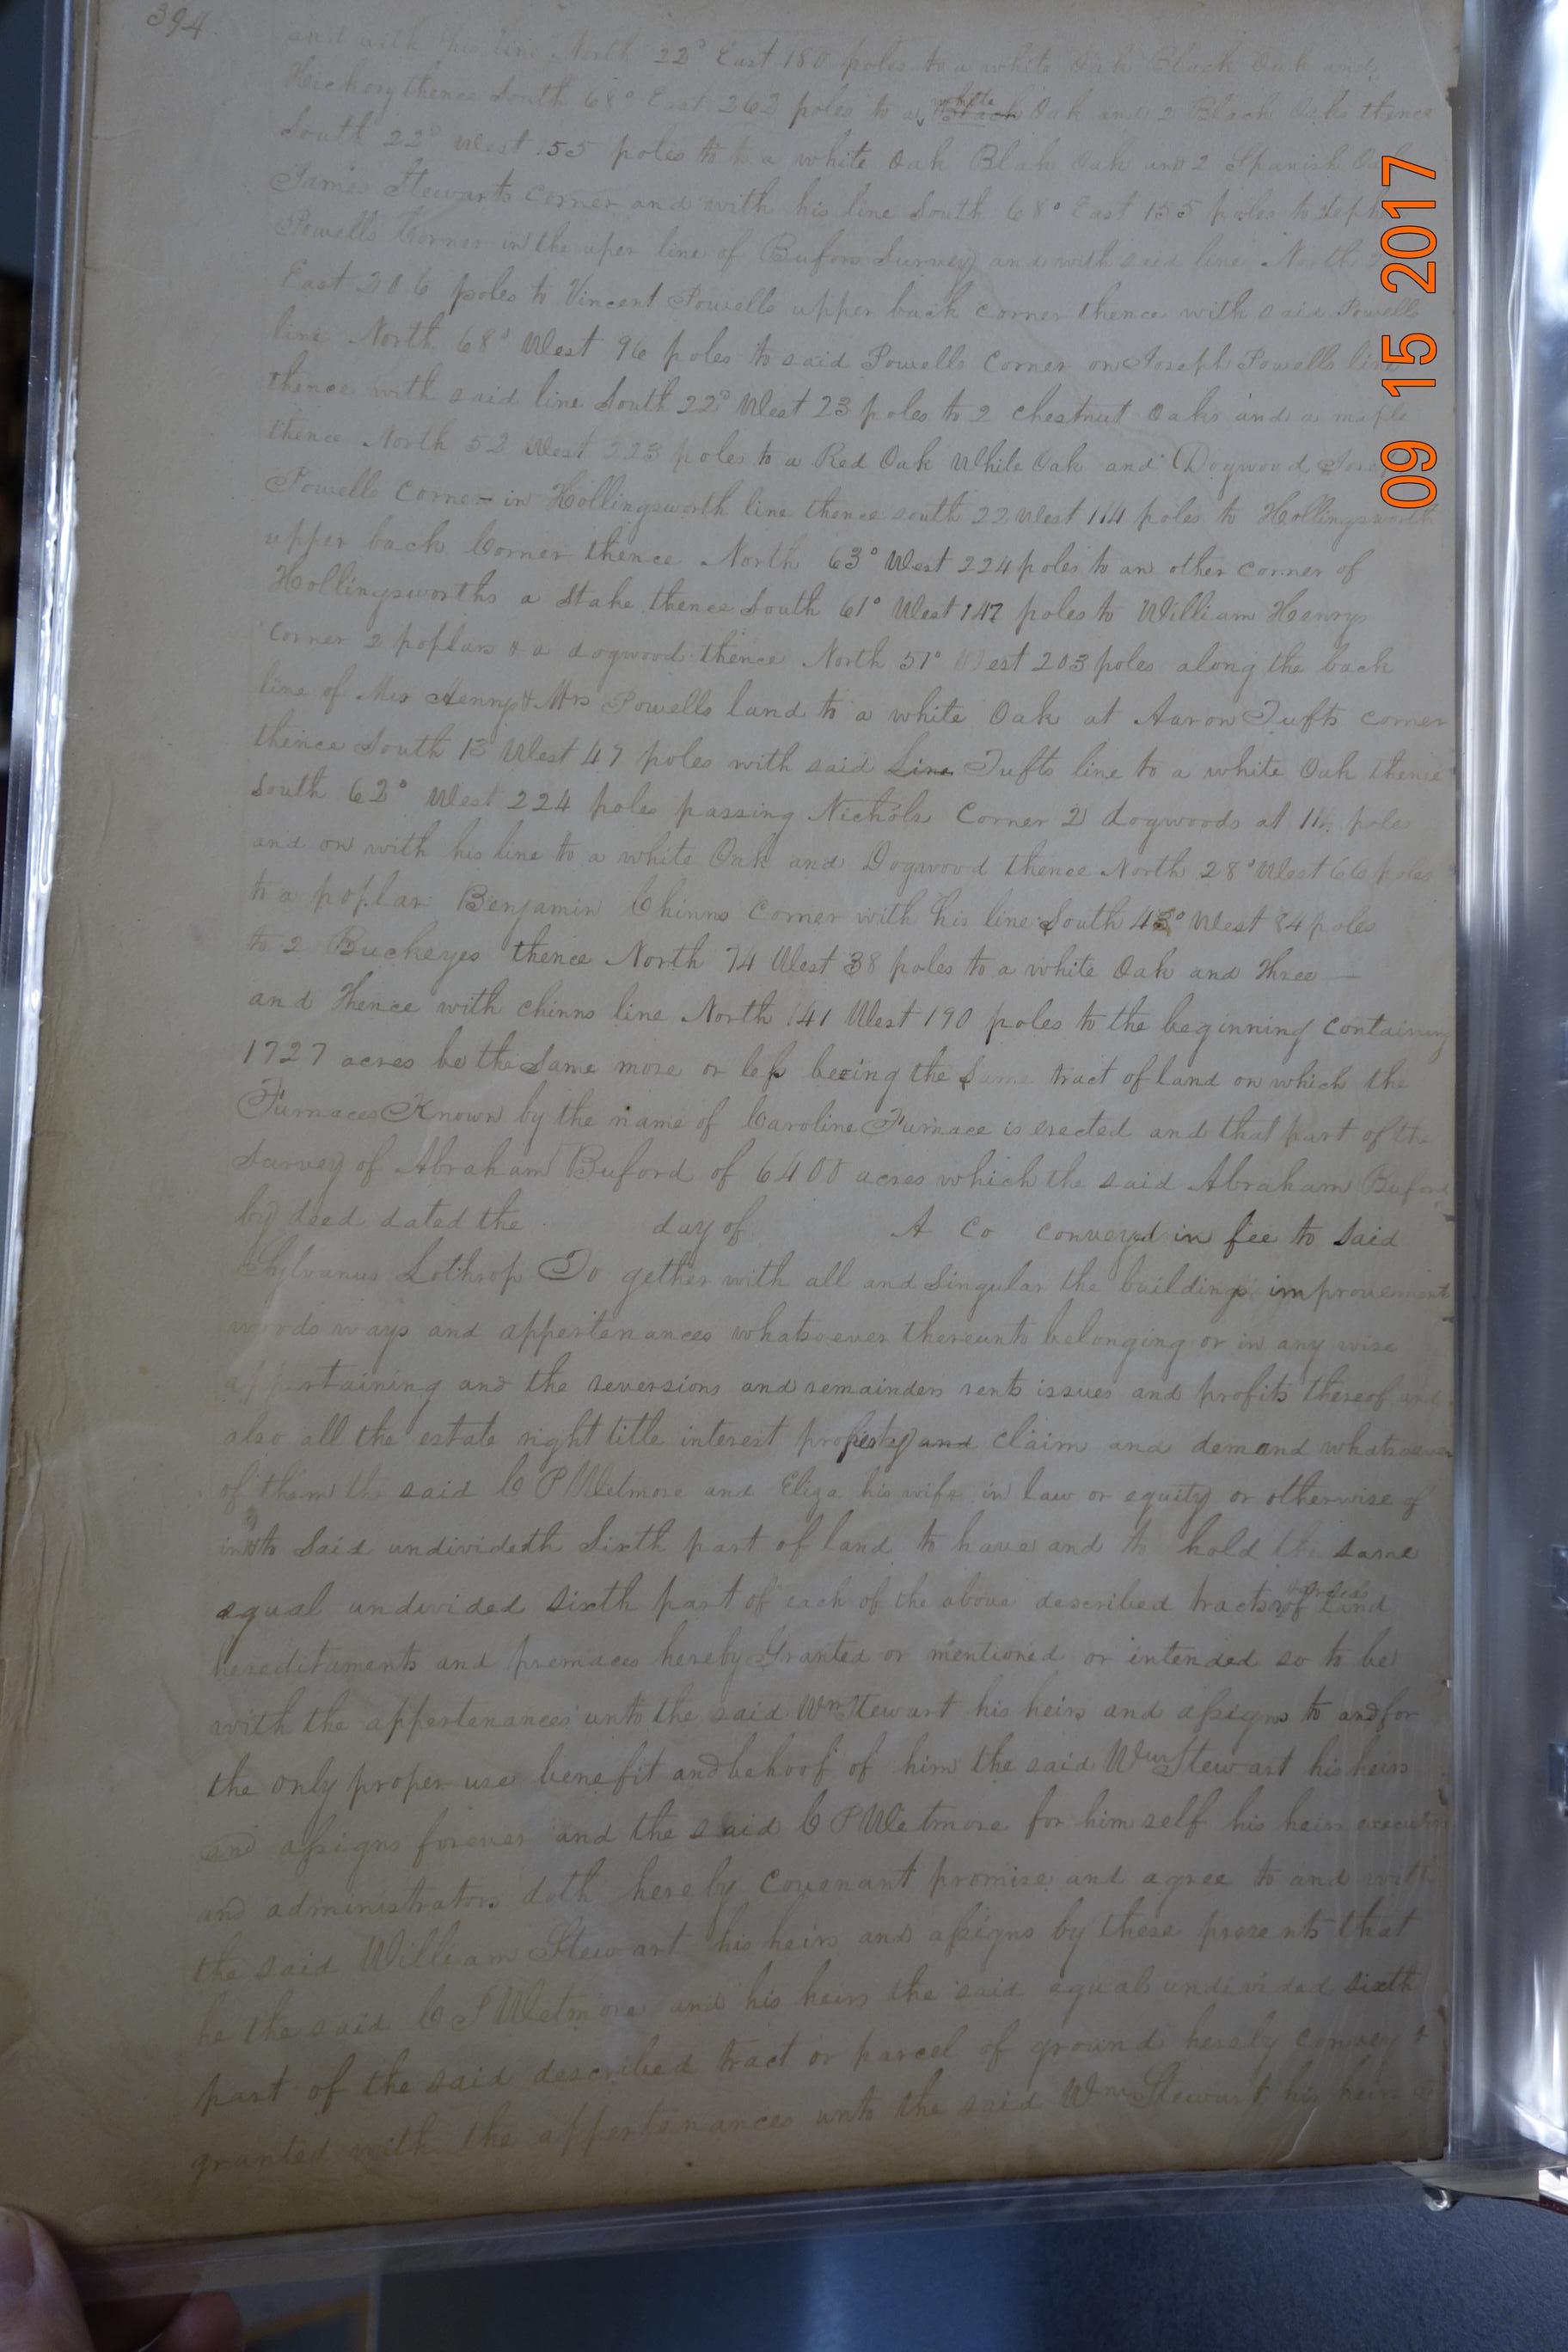 394
and with his line North 22° East 180 poles to a white Oak Black Oak and
Hickory thence South 68° East 262 poles to a Black white Oak and 2 Black Oaks thence
South 22° West 55 poles to a white Oak Blak Oak and 2 Spanish
James Stewarts corner and with his line South 68° East 155 poles to
Powells Corner in the uper line of Bufors Survey and with said line North
East 206 poles to Vincent Powells upper back corner thence with said Powells
line North 68° West 96 poles to said Powells Corner on Joseph Powells line
thence with said line South 22° West 23 poles to 2 chestnut Oaks and a maple
thence North 52 West 223 poles to a Red Oak White Oak and Dogwood
Powells corner in Hollingsworth line thence south 22 West 114 poles to Hollingsworth
upper back Corner thence North 63° West 224 poles to an other corner of
Hollingsworths a Stake thence South 61° West 147 poles to William Henrys
Corner 2 poplars & a dogwood thence North 51° West 203 poles along the back
line of Mrs Henry & Mrs Powells land to a white Oak at Aaron Tufts corner
thence South 13 West 47 poles with said Line Tufts line to a white Oak thence
South 62° West 224 poles passing Nichols Corner 2 dogwoods at poles
and on with his line to a white Oak and Dogwood thence North 28° West 66 poles
to a poplar Benjamin Chinns Corner with his line South West 84 poles
to 2 Buckeyes thence North 74 West 38 poles to a white Oak and Three —
and thence with chinns line North 41 West 190 poles to the beginning Containing
1727 acres be the Same more or less beeing the Same tract of land on which the
Furnaces Known by the name of Caroline Furnace is erected and that part of the
Survey of Abraham Buford of 6400 acres which the said Abraham Buford
by deed dated the day of A Co conveyed in fee to said
Sylvanus Lothrop To gether with all and Singular the buildings improvements
woods ways and appertenances whatsoever thereunto belonging or in any wise
appertaining and the reversions and remainders rents issues and profits thereof and
also all the estate right title interest property and claim and demand whatsoever
of them the said C P Wetmore and Eliza his wife in law or equity or otherwise of
in & to Said undivideth Sixth part of land to have and to hold the same
equal undivided sixth part of each of the above described tracts of Land
hereditaments and premaces hereby Granted or mentioned or intended so to be
with the appertenances unto the said Wm Stewart his heirs and assigns to and for
the only proper use benefit and behoof of him the said Wm Stewart his heirs
and assigns forever and the said C P Wetmore for him self his heirs executors
and administrators doth hereby Covenant promise and agree to and with
the said William Stewart his heirs and assigns by these presents that
he the said C P Wetmore and his heirs the said equal undivided sixth
part of the said described tract or parcel of ground hereby convey &
granted with the appertenances unto the said Wm Stewart his heirs
09 15 2017